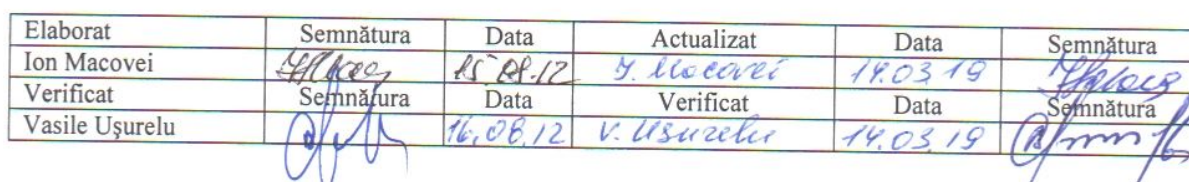 Elaborat Semnătura Data Actualizat Data Semnătura
Ion Macovei 15.08.12 I. Macovei 14.03.19
Verificat Semnătura Data Verificat Data Semnătură
Vasile Uşurelu 16.08.12 V. Uşurelu 14.03.19